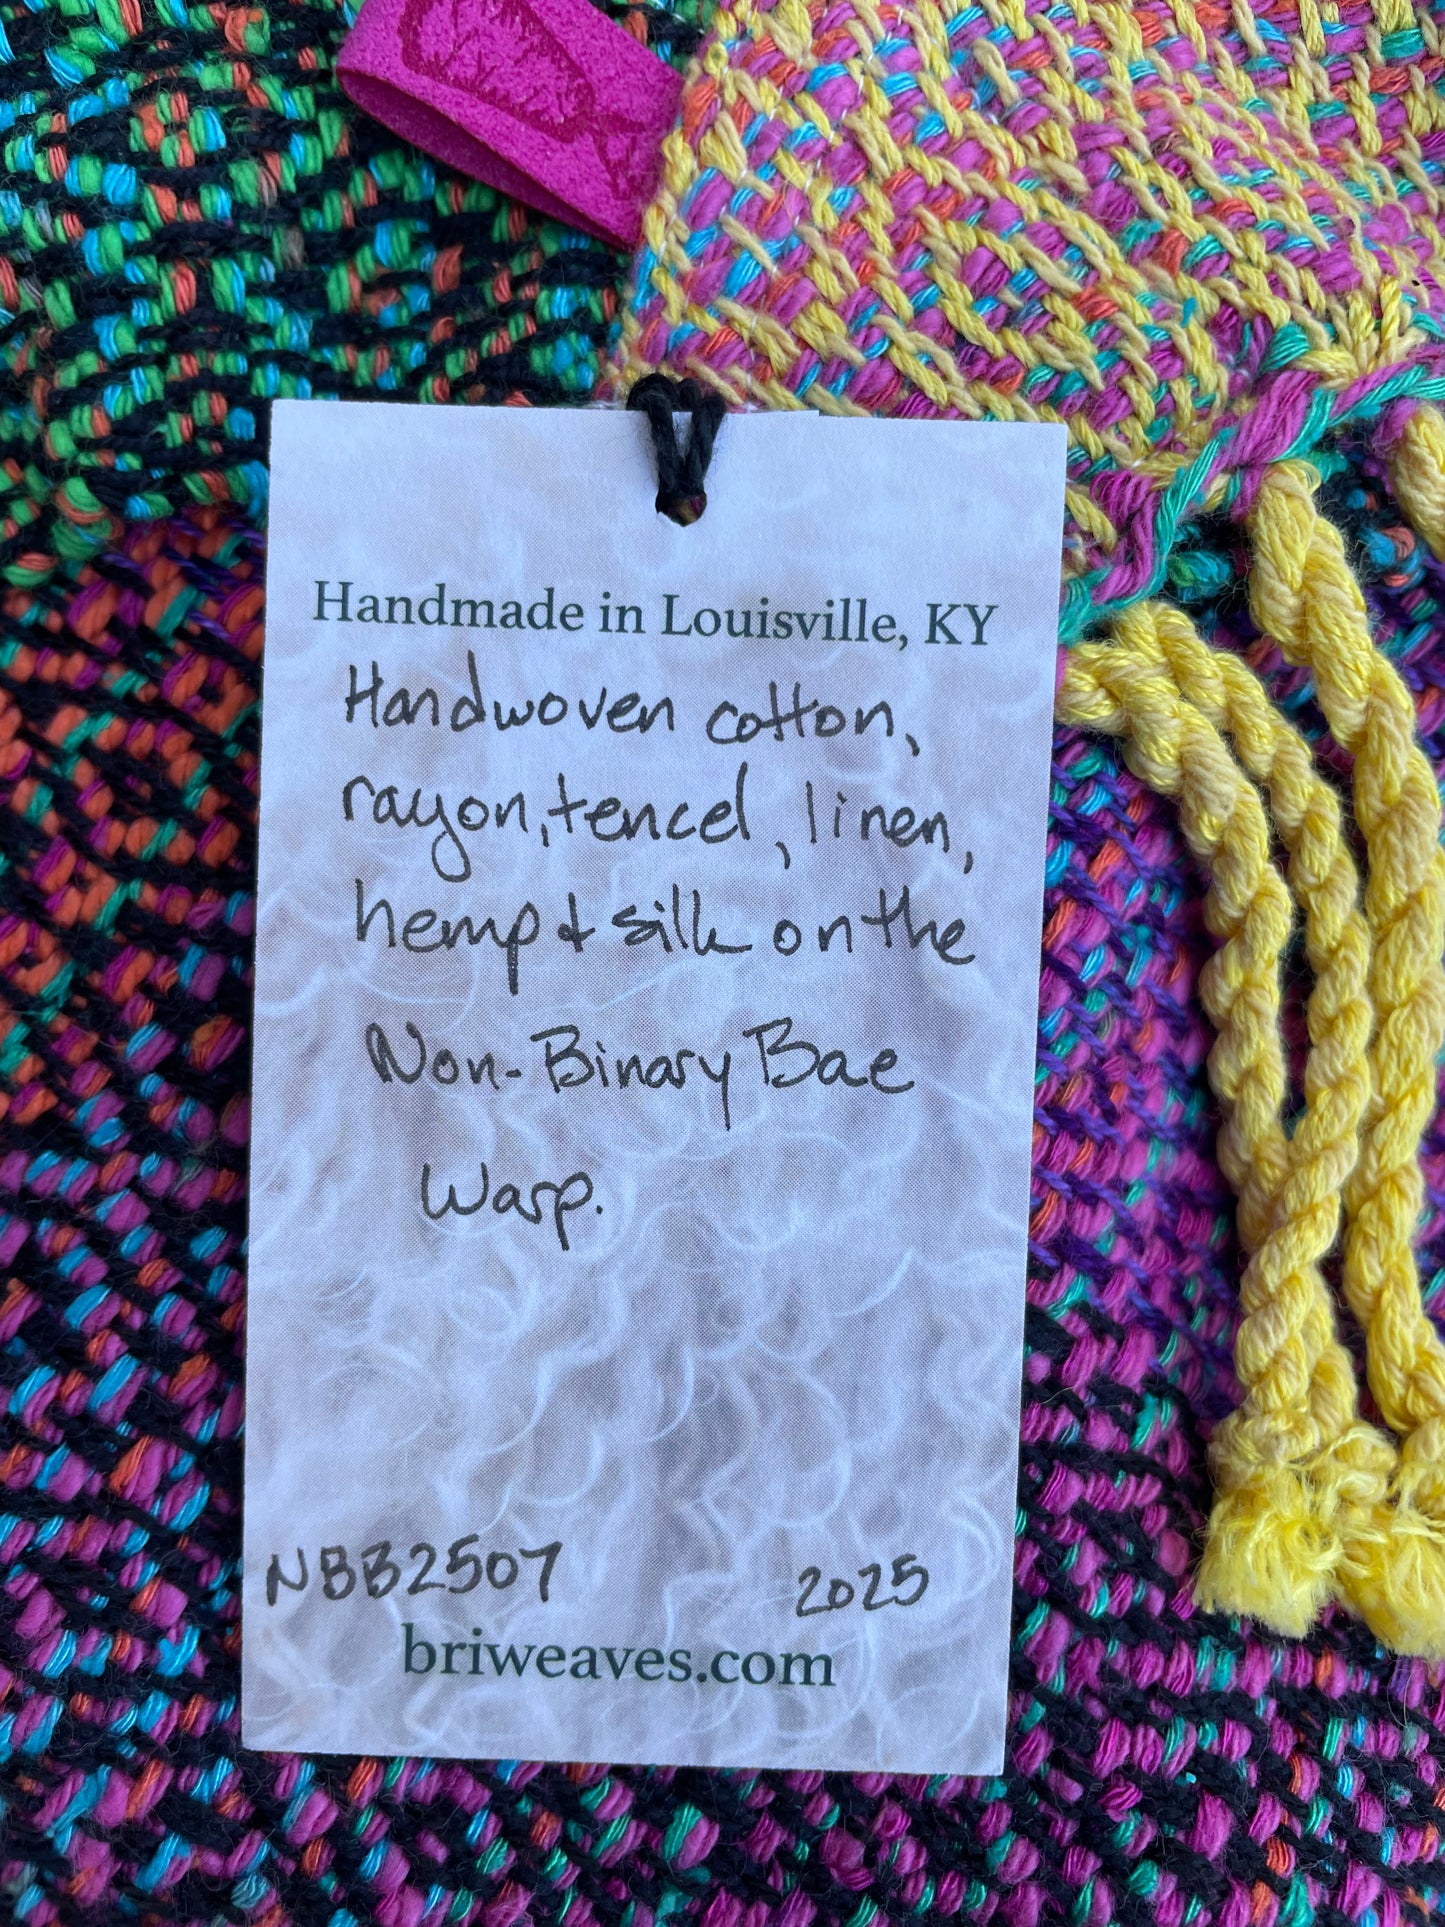 Handmade in Louisville, KY
Handwoven cotton,
rayon, tencel, linen,
hemp & silk on the
Non-Binary Bae
Warp.
NBB2507 2025
briweaves.com